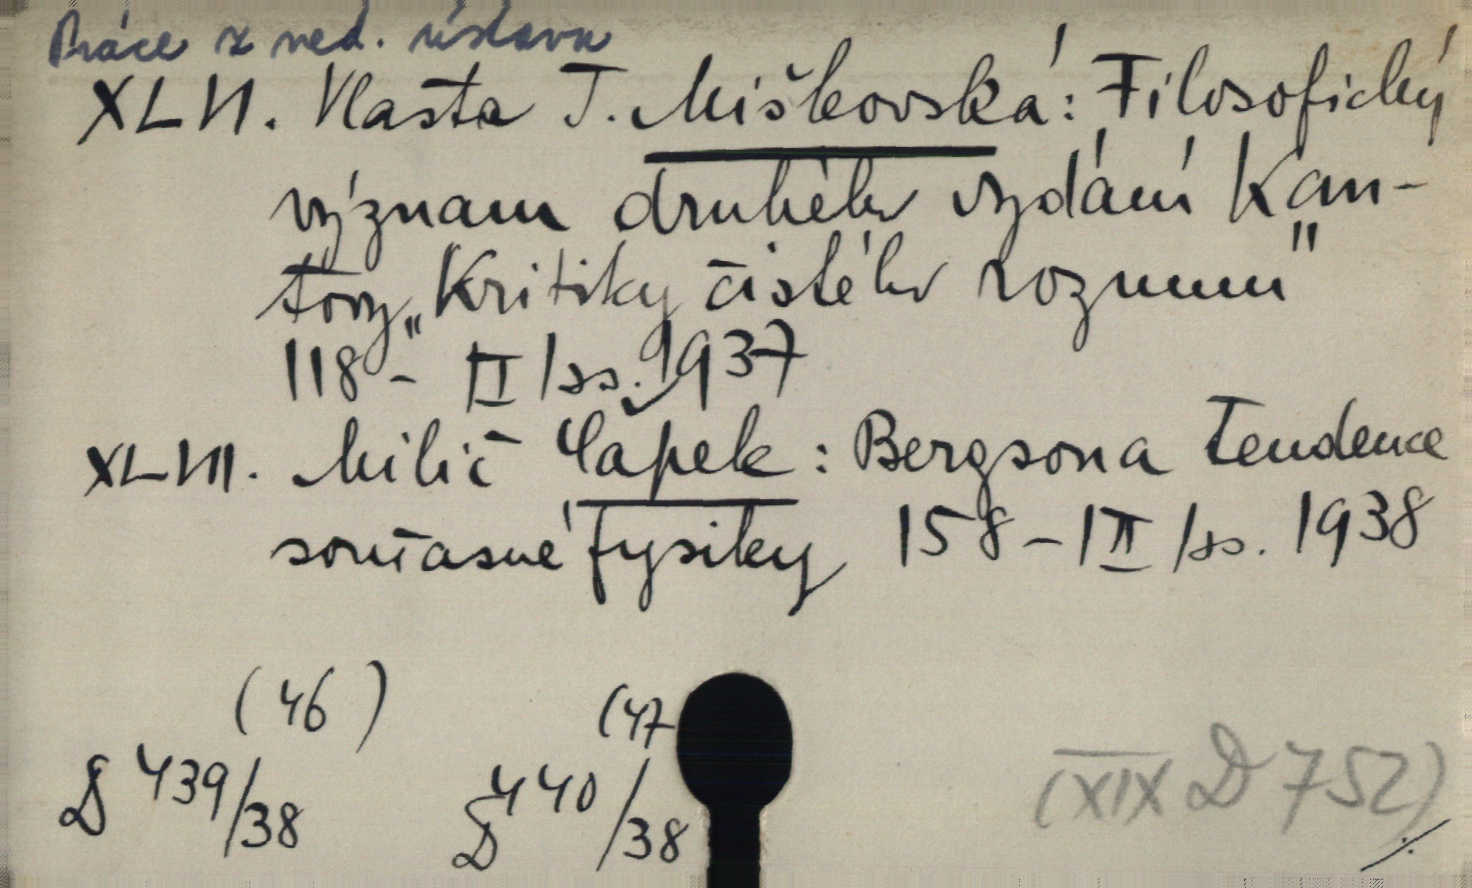 Práce z věd. ústavu
XLVI. Vlasta T. Miškovská: Filosofický
význam druhého vydání Kan-
tovy „Kritiky čistého rozumu"
118 - II / ss. 1937
XLVII. Milič Čapek: Bergson a tendence
současné fysiky 158 - III / ss. 1938
(46) (47
D 439/38 D 440/38
(XIX D 752)